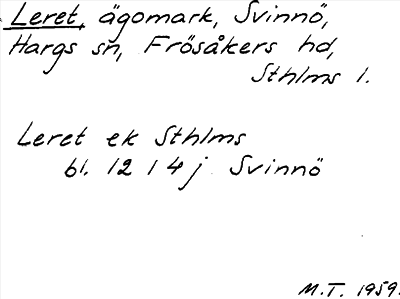 Leret, ägomark, Svinnö,
Hargs sn, Frösåkers hd,
Sthlms l.
Leret ek Sthlms
bl. 12 I 4 j Svinnö
M.T. 1959.